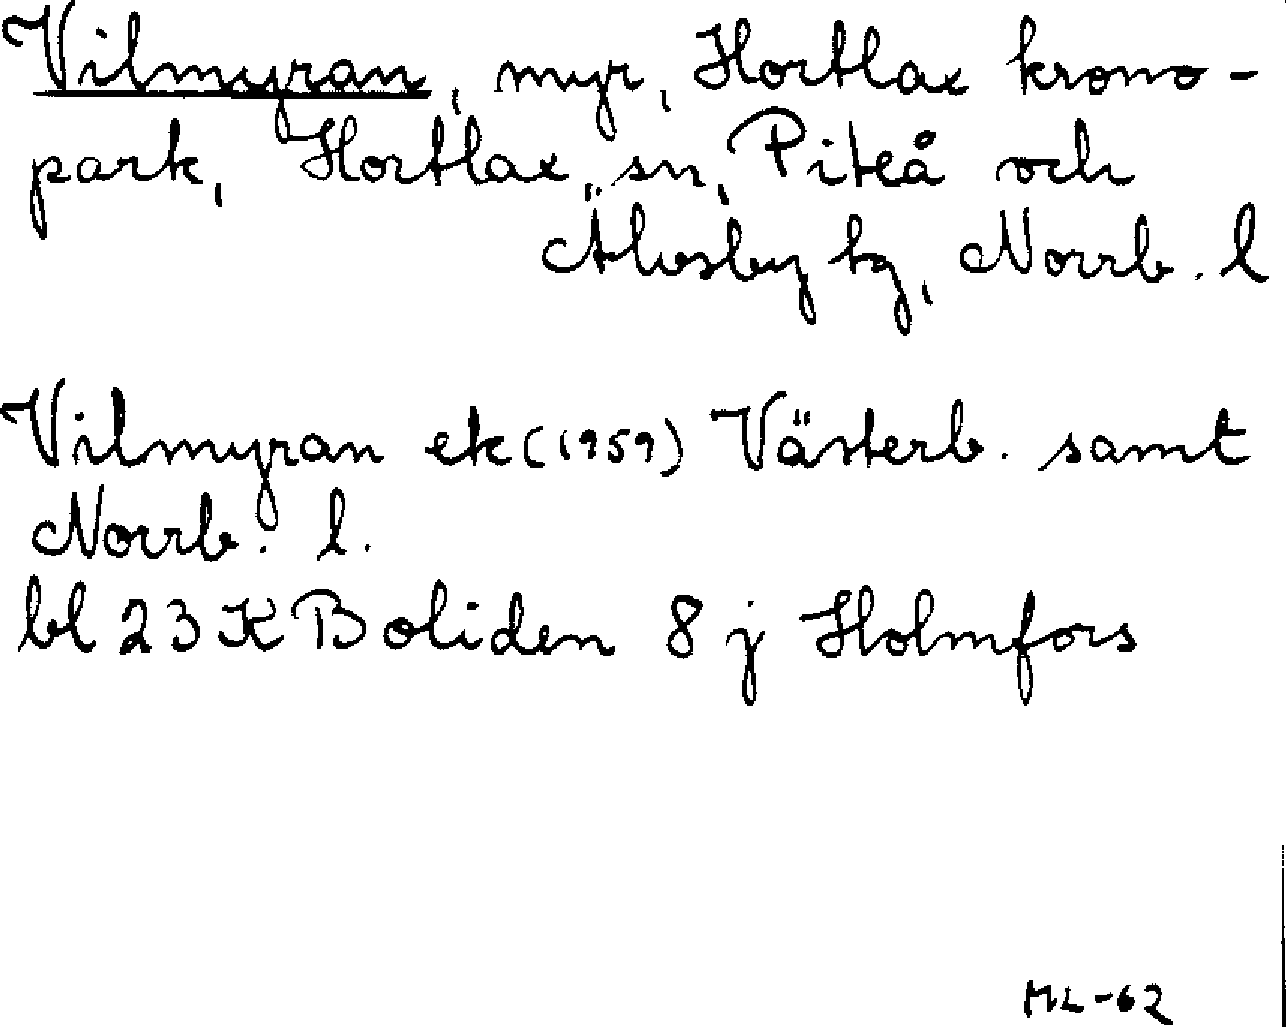 Vilmyran, myr, Hortlax krono-
park, Hortlax, sn, Piteå och
Älvsby tg, Norrb. l
Vilmyran ek (1959) Västerb. samt
Norrb. l.
bl 23 K Boliden 8 j Holmfors
ML-62